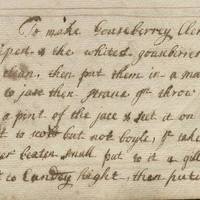 To make Gouseberrey Cler
ripen & the whitest gousberrer
clean, then put them in a
to juse then strane yt throw
a pint of the juce & set it on
it to scold but not boyle, yt take
er beaten small put to it a gill
to Candey hight, then put it